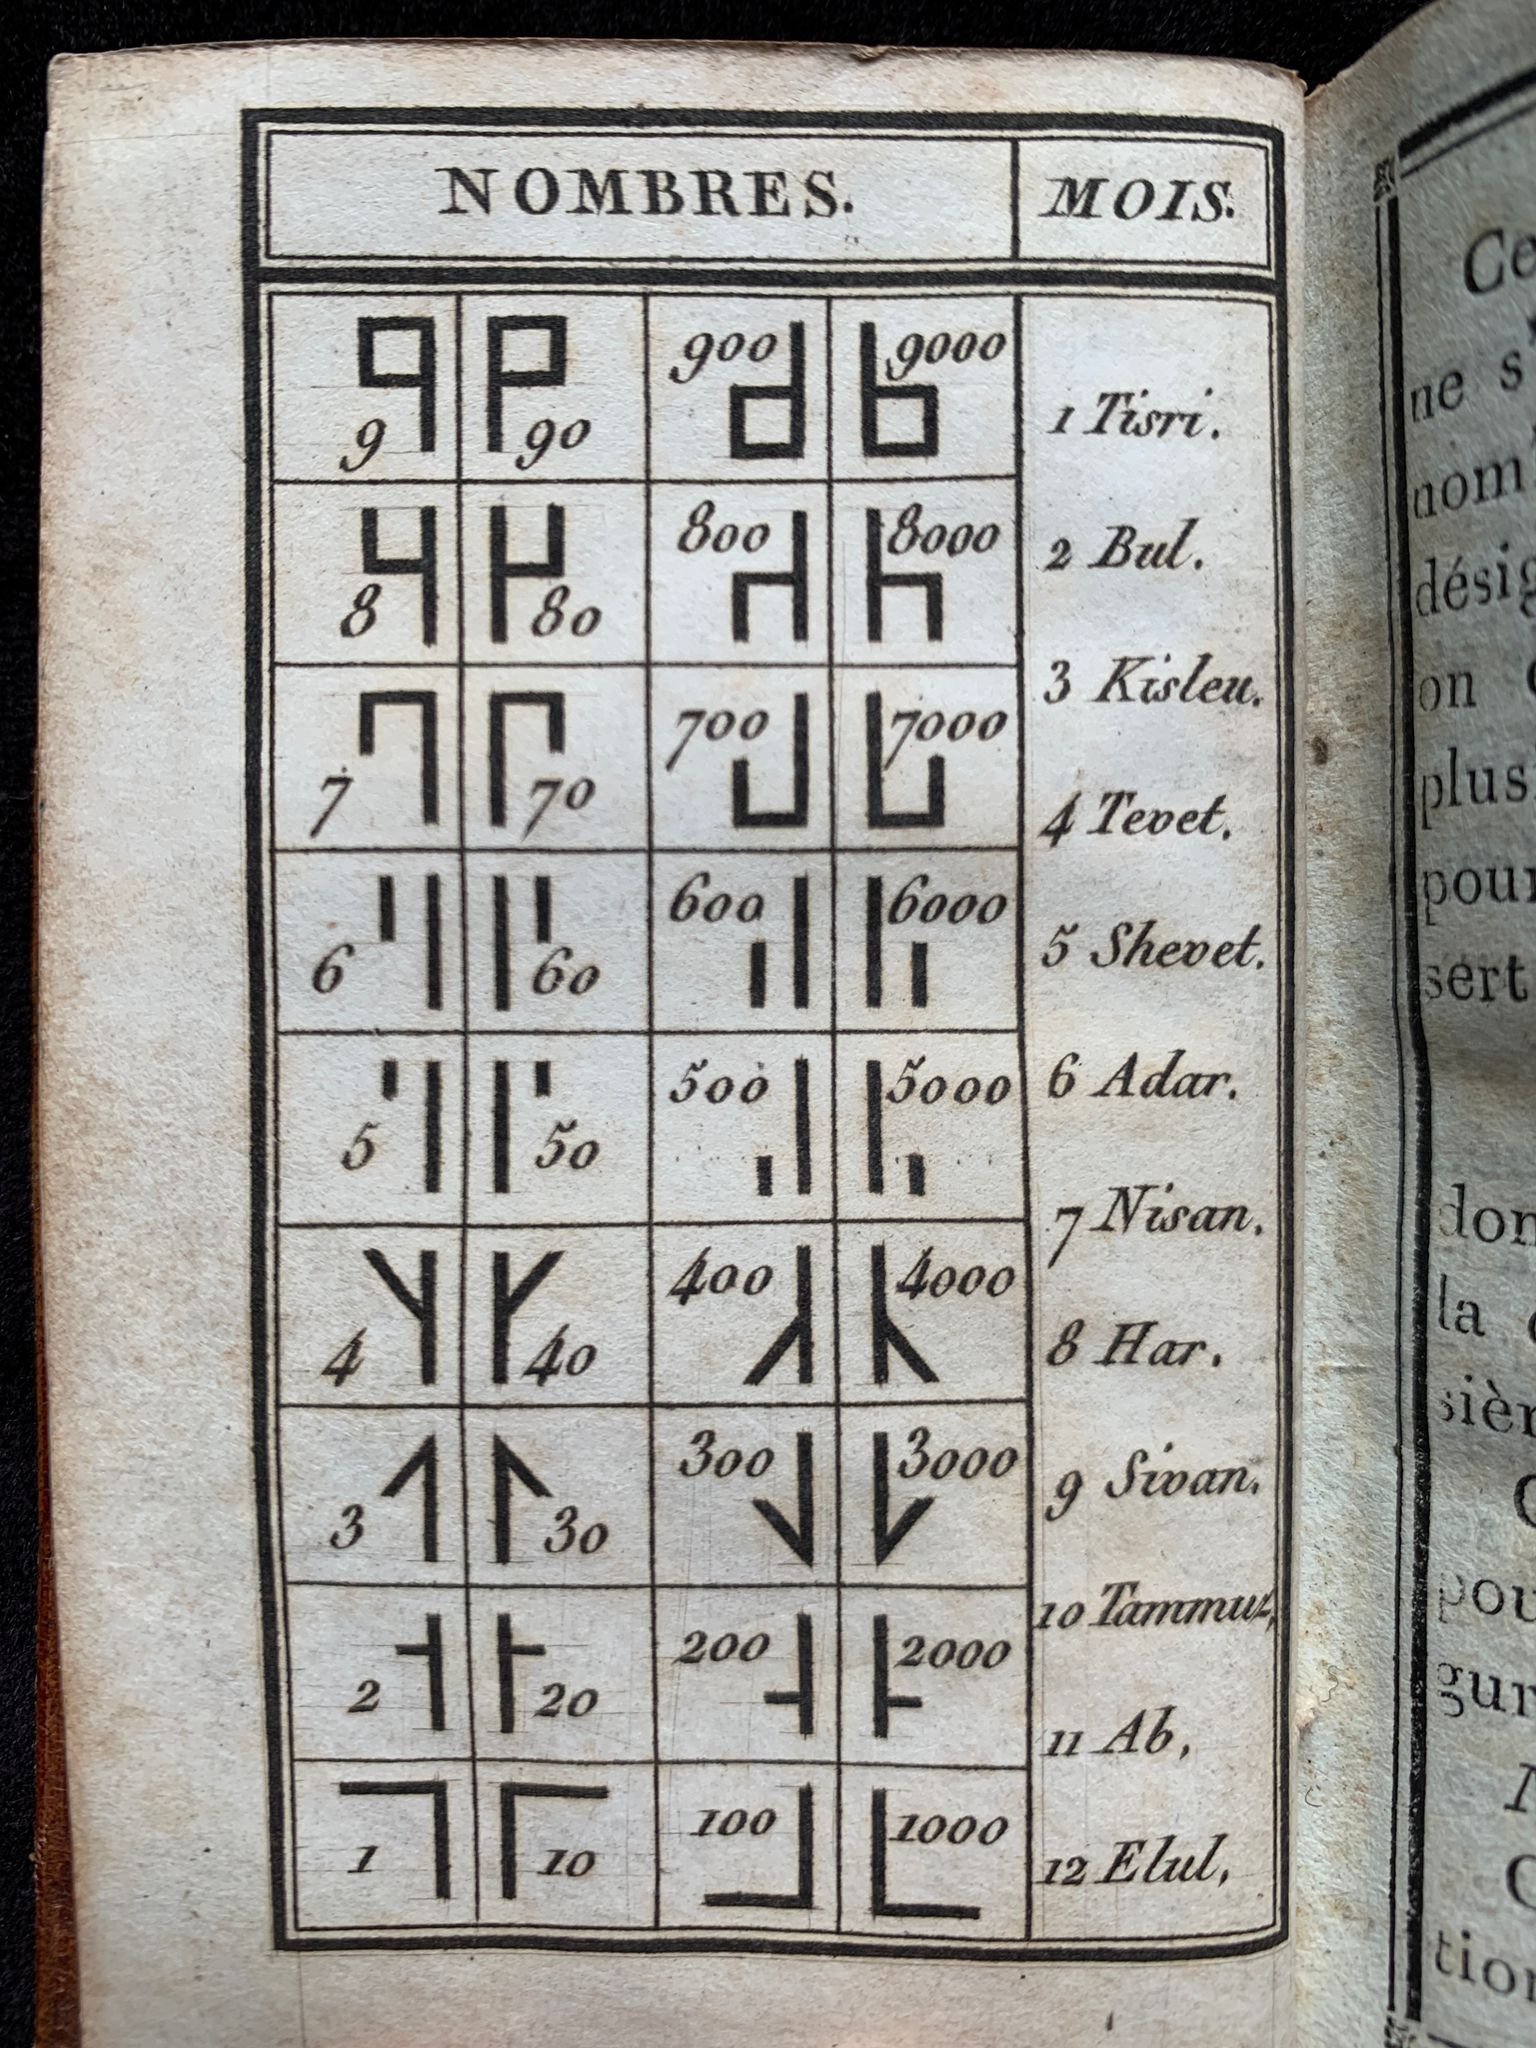 NOMBRES. MOIS.
9 90 900 9000
8 80 800 8000
7 70 700 7000
6 60 600 6000
5 50 500 5000
4 40 400 4000
3 30 300 3000
2 20 200 2000
1 10 100 1000
1 Tisri.
2 Bul.
3 Kisleu.
4 Tevet.
5 Shevet.
6 Adar.
7 Nisan.
8 Har.
9 Sivan.
10 Tammuz,
11 Ab,
12 Elul,
ne s
désig
on
sert
la